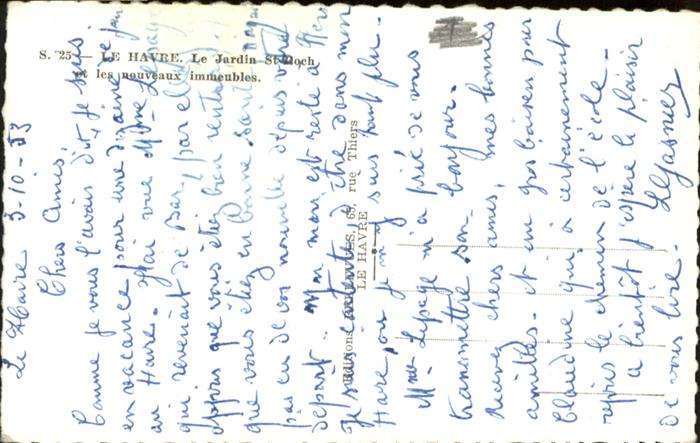 S. 25 — LE HAVRE. Le Jardin St-Roch
et les nouveaux immeubles.
Editions 65, rue Thiers
LE HAVRE
Le Havre 3-10-53
Chers amis,
Comme je vous l'avais dit, je suis
en vacance pour une dizaine de
au Havre. J'ai vue Mme Lepage
qui revenait de par elle
que vous étiez bien rentré
que vous étiez en bonne santé
pas eu de vos nouvelle depuis votre
départ. Mon mari est resté à
Je suis contente d'être dans mon
Havre, où je m'y suis tant plu.
Mme Lepage m'a prié de vous
transmettre son bonjour.
Recevez chers amis, mes bonnes
amitiés et un gros baiser pour
Claudine qui a certainement
repris le chemin de l'école.
A bientôt j'espère le plaisir
De vous lire.